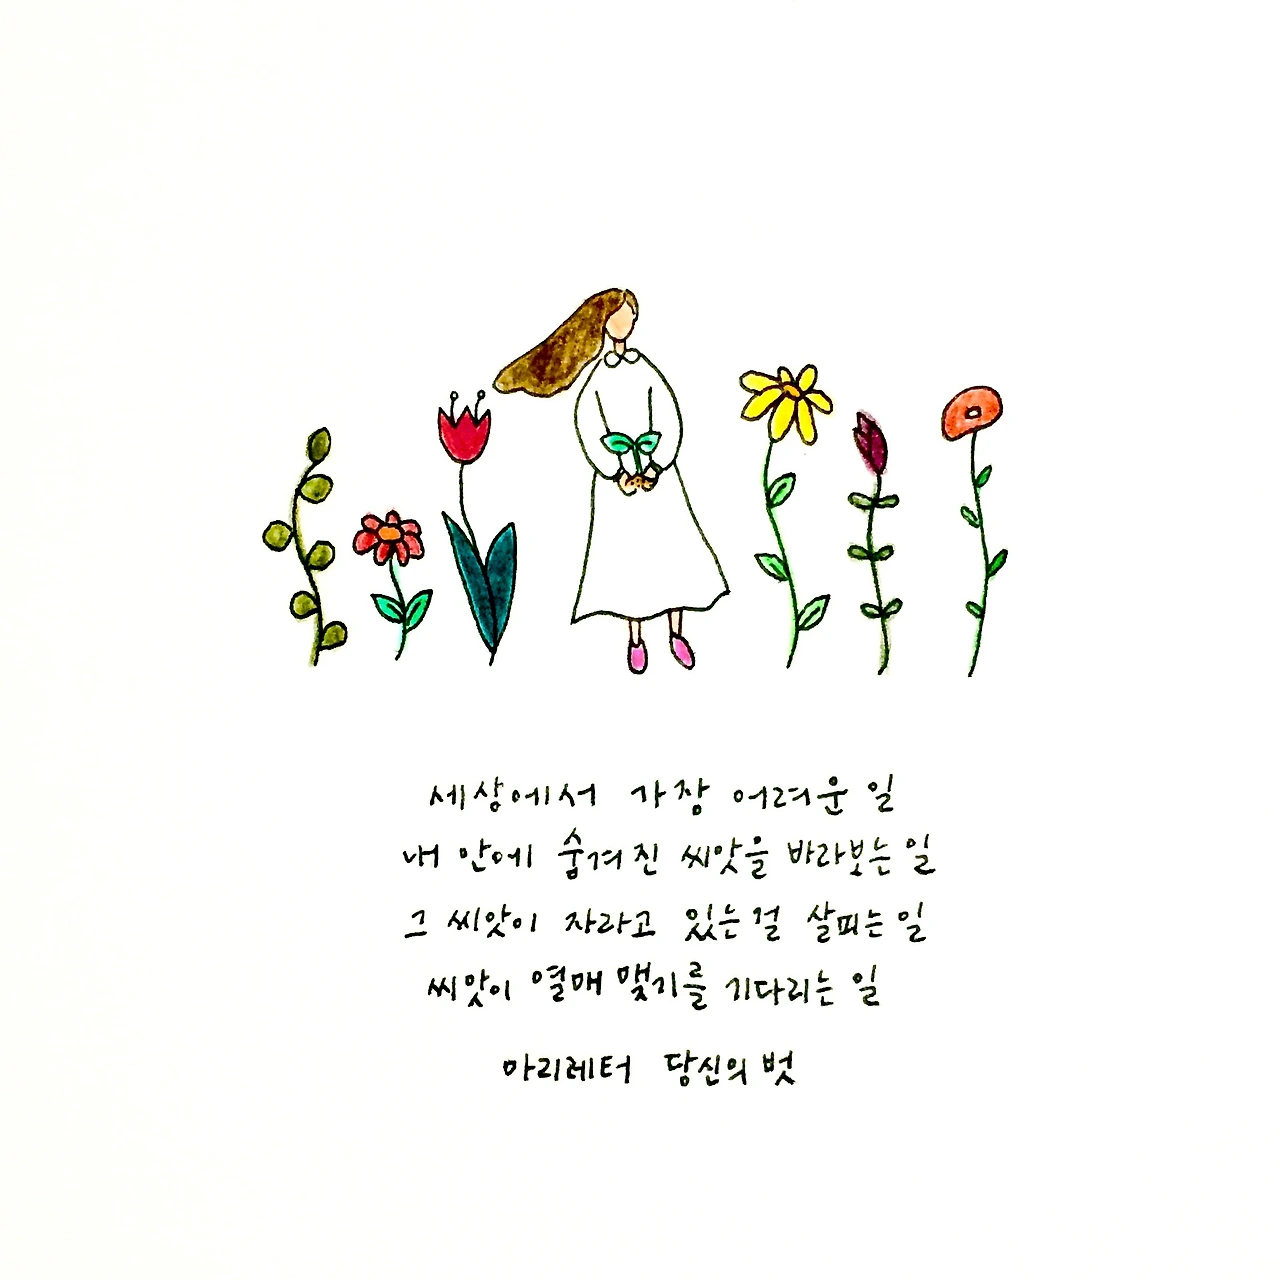 세상에서 가장 어려운 일
내 안에 숨겨진 씨앗을 바라보는 일
그 씨앗이 자라고 있는걸 살피는 일
씨앗이 열매 맺기를 기다리는 일
마리레터 당신의 벗